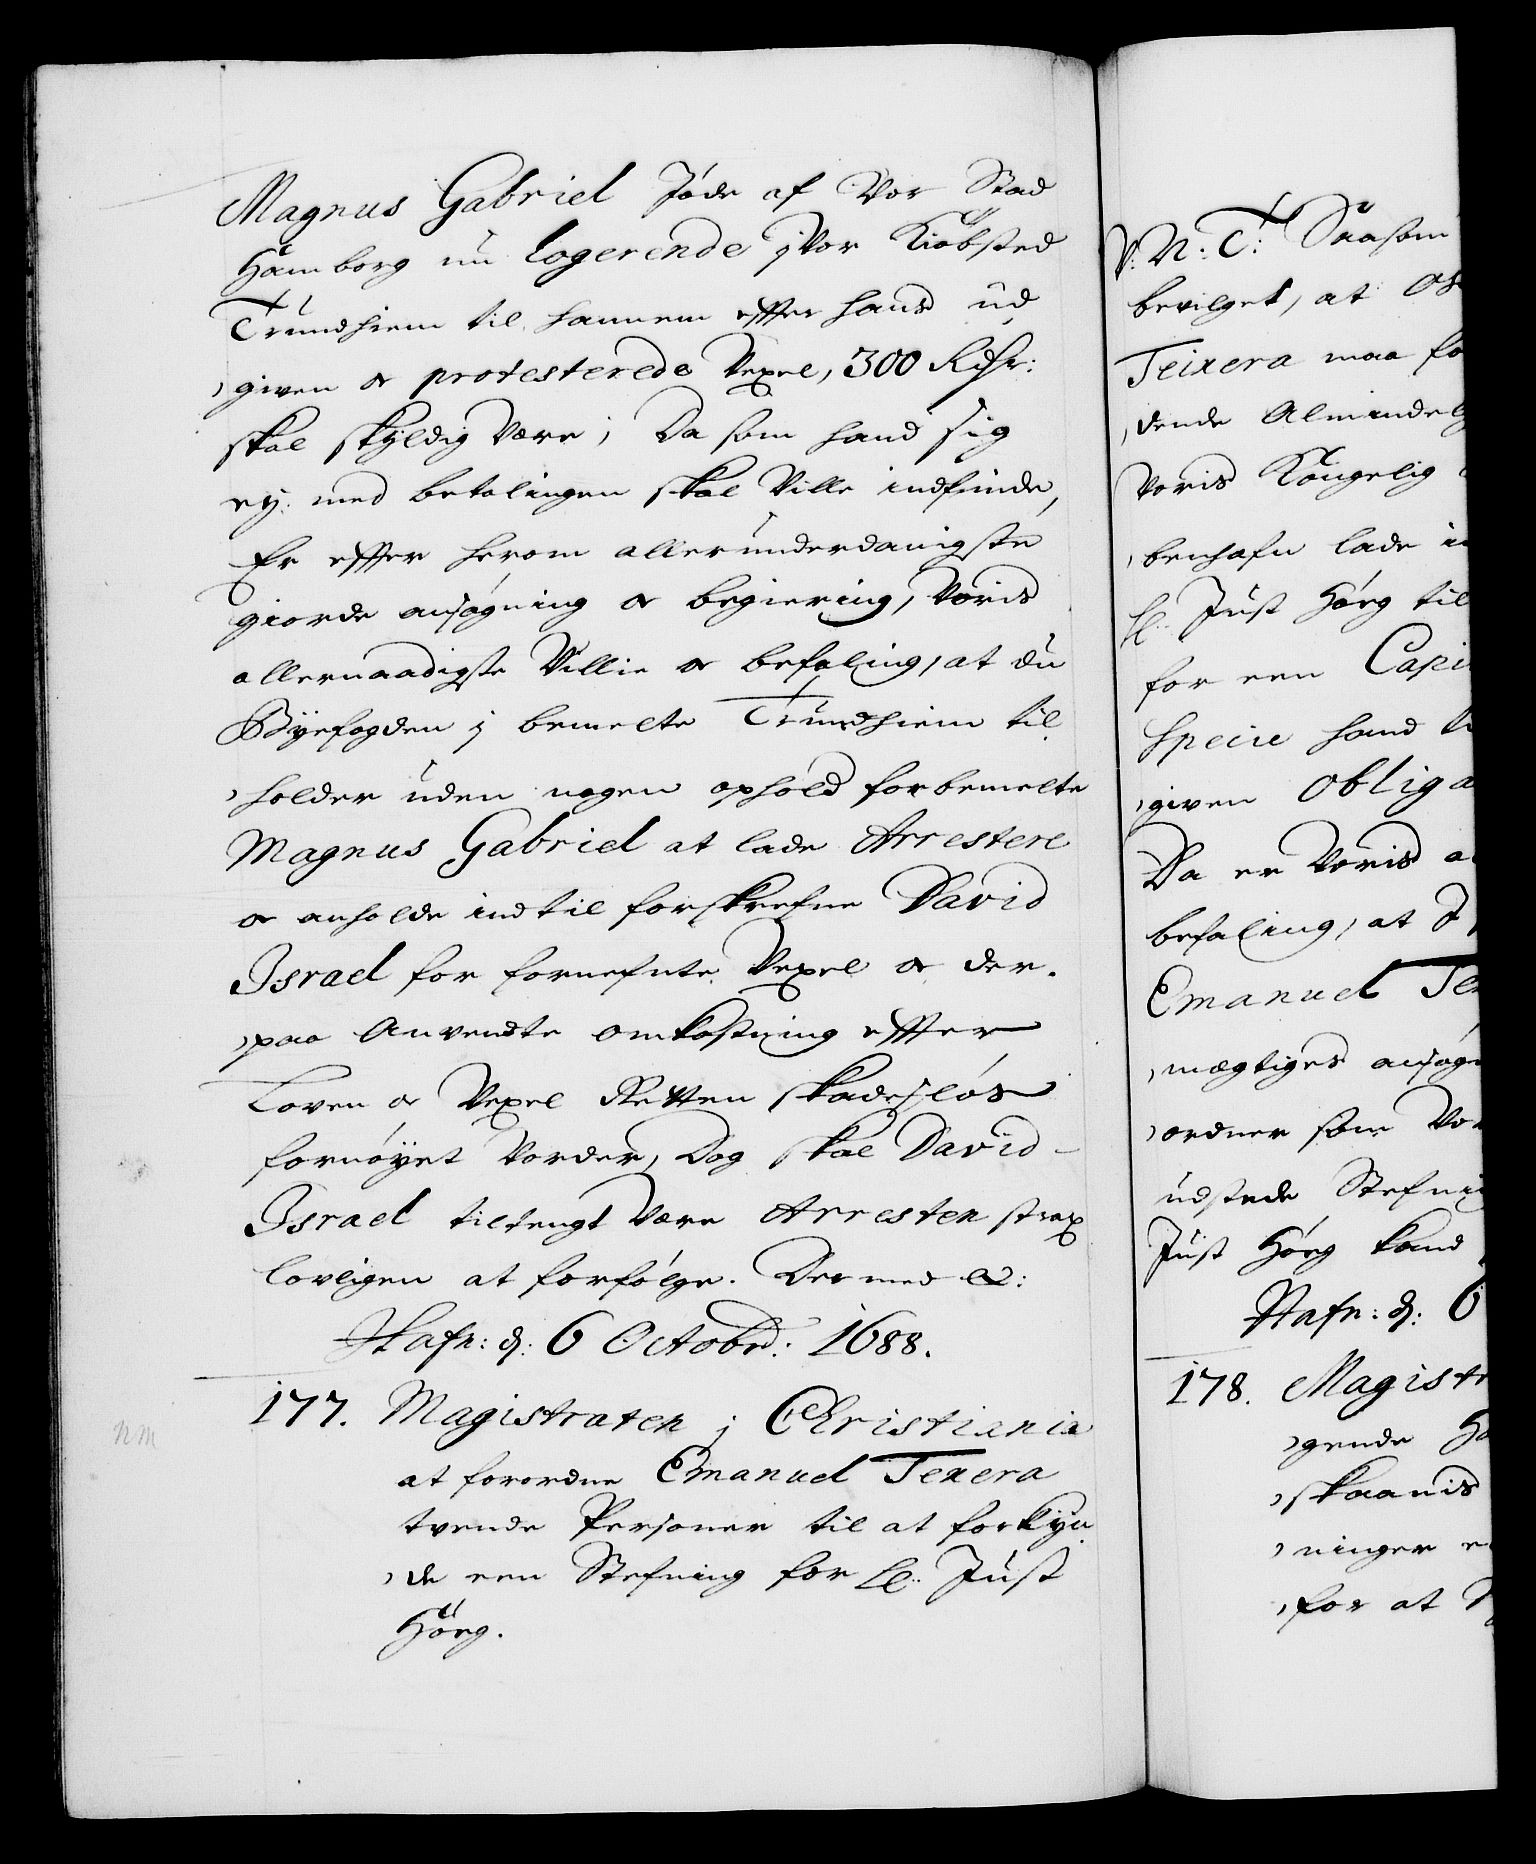 Magnus Gabriel Jøde af Vor Stad
Hamborg nu logerende j Vor Kiøbsted
Trundhiem til hannem effter hans ud
given oc protesterede Vexel, 300 Rdlr:
skal skyldig være; Da som hand sig
ej med betalingen skal Ville indfinde,
Er effter herom allerunderdanigste
giorde ansøgning oc begiering, Voris
allernaadigste Villie oc befaling, at du
Byefogden j bemelte Trundhiem til
holder uden nogen ophold forbemelte
Magnus Gabriel at lade Arrestere
oc anholde indtil forskrefne David
Israel for fornefnte Vexel oc der
paa Anvendte omkostning effter
Loven oc Vexel Retten skadesløs
fornøyet Vorder, Dog skal David
Israel tiltengt være Arresten strax
lovligen at forfølge. Dermed etc:
Hafn: d: 6 Octobr: 1688.
177. Magistraten j Christiania
at forordne Emanuel Texera
tvende Personer til at forkyn
de een Stefning for Sl. Just
Høeg.
NM
V: N: T: Saasom
bevilget, at
Teixera maa
dende Almindel
Voris Kongelig
benhafn lade
Sl. Just Høeg til
for een Capi
Specie hand
given Obliga
Da er Voris
befaling, at
Emanuel Te
mægtiges ansøg
ordner som
udstede Stefni
Just Høeg kand
Hafn: d: 6
178. Magistr
gende
skaanis
ninger
for at